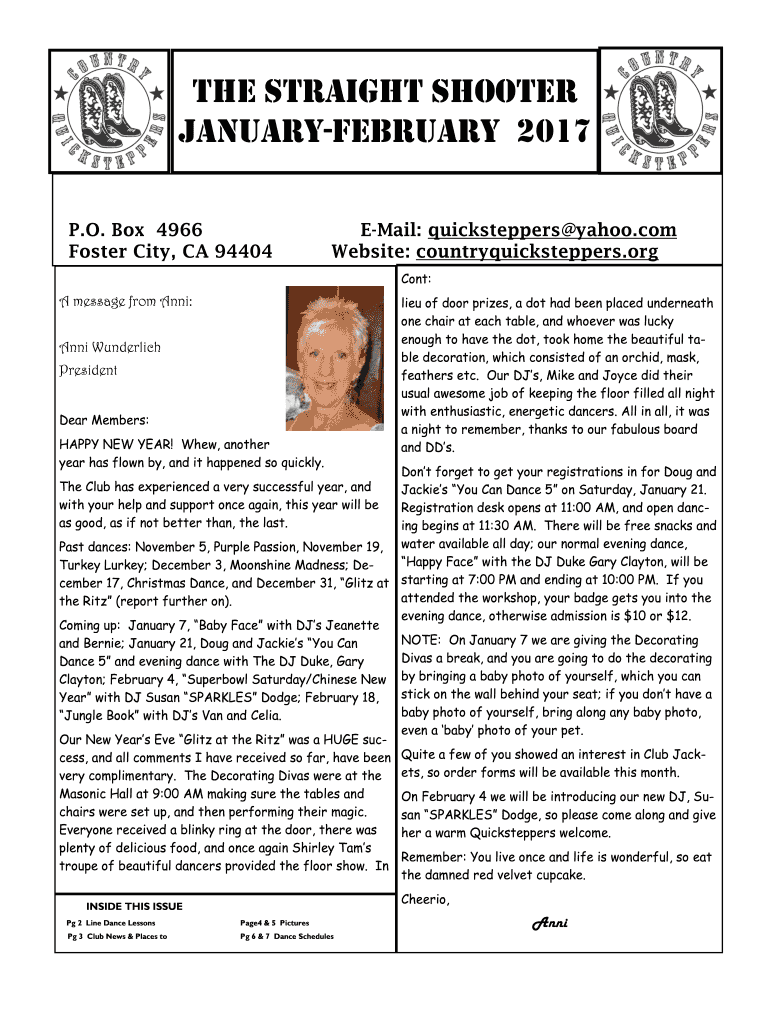 COUNTRY
QUICKSTEPPERS
THE STRAIGHT SHOOTER
JANUARY-FEBRUARY 2017
COUNTRY
QUICKSTEPPERS
P.O. Box 4966
Foster City, CA 94404
E-Mail: quicksteppers@yahoo.com
Website: countryquicksteppers.org
A message from Anni:
Anni Wunderlich
President
Dear Members:
HAPPY NEW YEAR! Whew, another
year has flown by, and it happened so quickly.
The Club has experienced a very successful year, and
with your help and support once again, this year will be
as good, as if not better than, the last.
Past dances: November 5, Purple Passion, November 19,
Turkey Lurkey; December 3, Moonshine Madness; De-
cember 17, Christmas Dance, and December 31, “Glitz at
the Ritz” (report further on).
Coming up: January 7, “Baby Face” with DJ’s Jeanette
and Bernie; January 21, Doug and Jackie’s “You Can
Dance 5” and evening dance with The DJ Duke, Gary
Clayton; February 4, “Superbowl Saturday/Chinese New
Year” with DJ Susan “SPARKLES” Dodge; February 18,
“Jungle Book” with DJ’s Van and Celia.
Our New Year’s Eve “Glitz at the Ritz” was a HUGE suc-
cess, and all comments I have received so far, have been
very complimentary. The Decorating Divas were at the
Masonic Hall at 9:00 AM making sure the tables and
chairs were set up, and then performing their magic.
Everyone received a blinky ring at the door, there was
plenty of delicious food, and once again Shirley Tam’s
troupe of beautiful dancers provided the floor show. In
Cont:
lieu of door prizes, a dot had been placed underneath
one chair at each table, and whoever was lucky
enough to have the dot, took home the beautiful ta-
ble decoration, which consisted of an orchid, mask,
feathers etc. Our DJ’s, Mike and Joyce did their
usual awesome job of keeping the floor filled all night
with enthusiastic, energetic dancers. All in all, it was
a night to remember, thanks to our fabulous board
and DD’s.
Don’t forget to get your registrations in for Doug and
Jackie’s “You Can Dance 5” on Saturday, January 21.
Registration desk opens at 11:00 AM, and open danc-
ing begins at 11:30 AM. There will be free snacks and
water available all day; our normal evening dance,
“Happy Face” with the DJ Duke Gary Clayton, will be
starting at 7:00 PM and ending at 10:00 PM. If you
attended the workshop, your badge gets you into the
evening dance, otherwise admission is $10 or $12.
NOTE: On January 7 we are giving the Decorating
Divas a break, and you are going to do the decorating
by bringing a baby photo of yourself, which you can
stick on the wall behind your seat; if you don’t have a
baby photo of yourself, bring along any baby photo,
even a ‘baby’ photo of your pet.
Quite a few of you showed an interest in Club Jack-
ets, so order forms will be available this month.
On February 4 we will be introducing our new DJ, Su-
san “SPARKLES” Dodge, so please come along and give
her a warm Quicksteppers welcome.
Remember: You live once and life is wonderful, so eat
the damned red velvet cupcake.
Cheerio,
Anni
INSIDE THIS ISSUE
Pg 2 Line Dance Lessons
Pg 3 Club News & Places to
Page4 & 5 Pictures
Pg 6 & 7 Dance Schedules